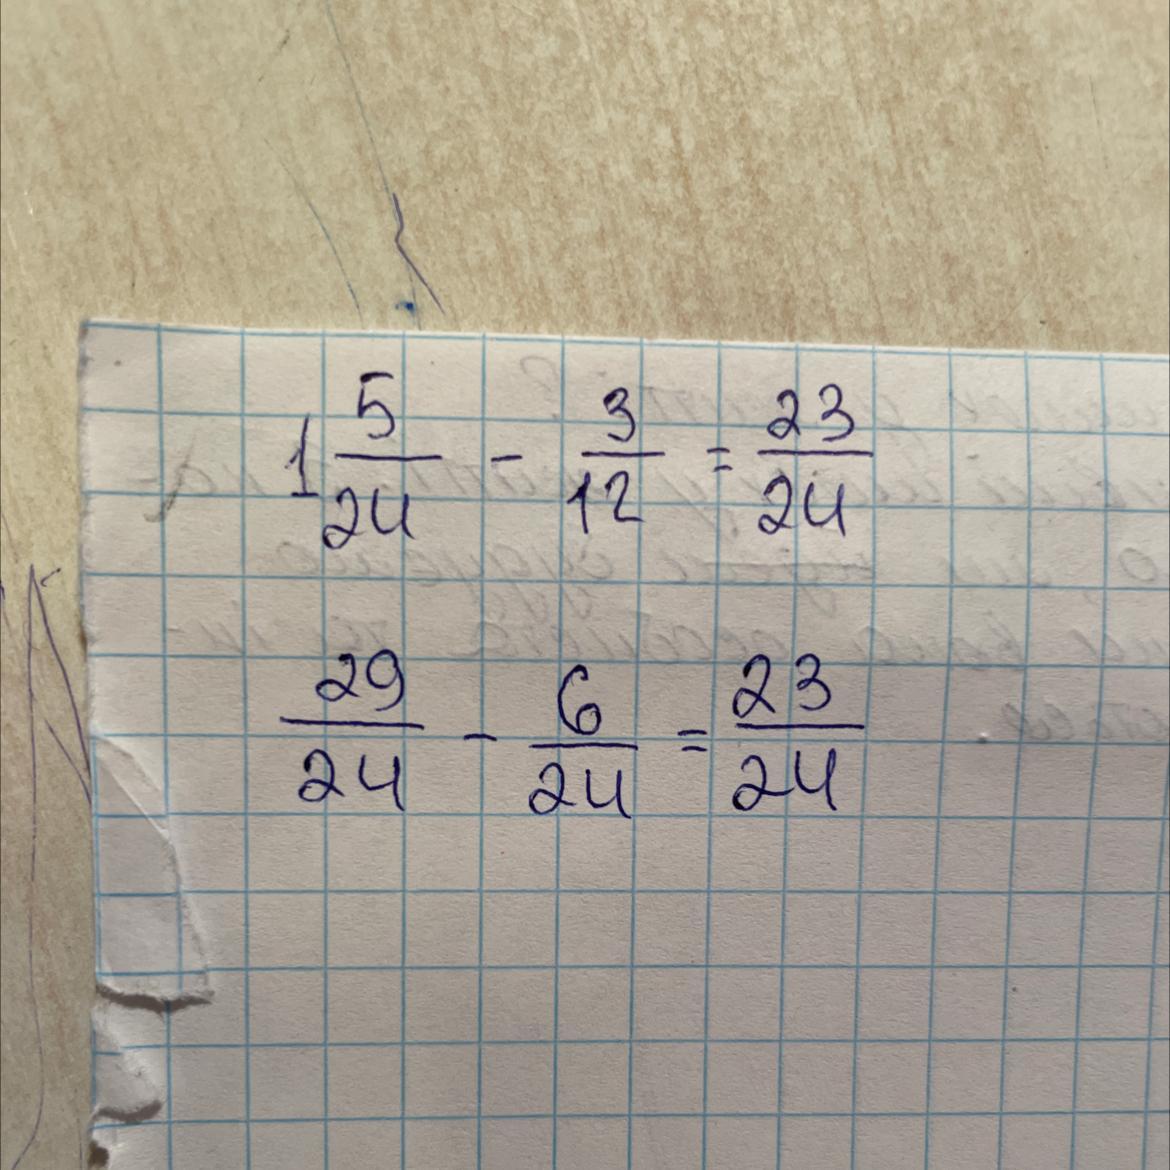 1 5/24 - 3/12 = 23/24
29/24 - 6/24 = 23/24